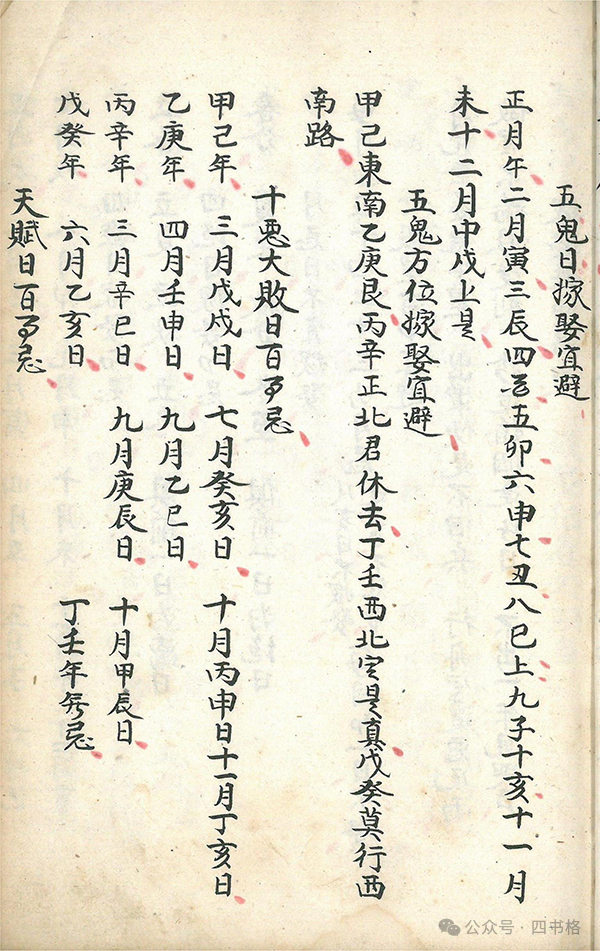 五鬼日嫁娶宜避
正月午二月寅三辰四酉五卯六申七丑八巳上九子十亥十一月
未十二月中戌上是
五鬼方位嫁娶宜避
甲己東南乙庚艮丙辛正北君休去丁壬西北定是真戊癸莫行西
南路
十悪大敗日百事忌
甲己年 三月戊戌日 七月癸亥日 十月丙申日十一月丁亥日
乙庚年 四月壬申日 九月乙巳日
丙辛年 三月辛巳日 九月庚辰日 十月甲辰日
戊癸年 六月乙亥日 丁壬年無忌
天賊日百事忌
公众号·四书格